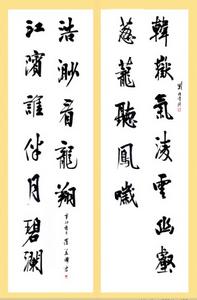 韓嶽氣凌雲幽壑
葱蘢聽鳳噦
江濱誰伴月碧瀾
浩渺看龍翔